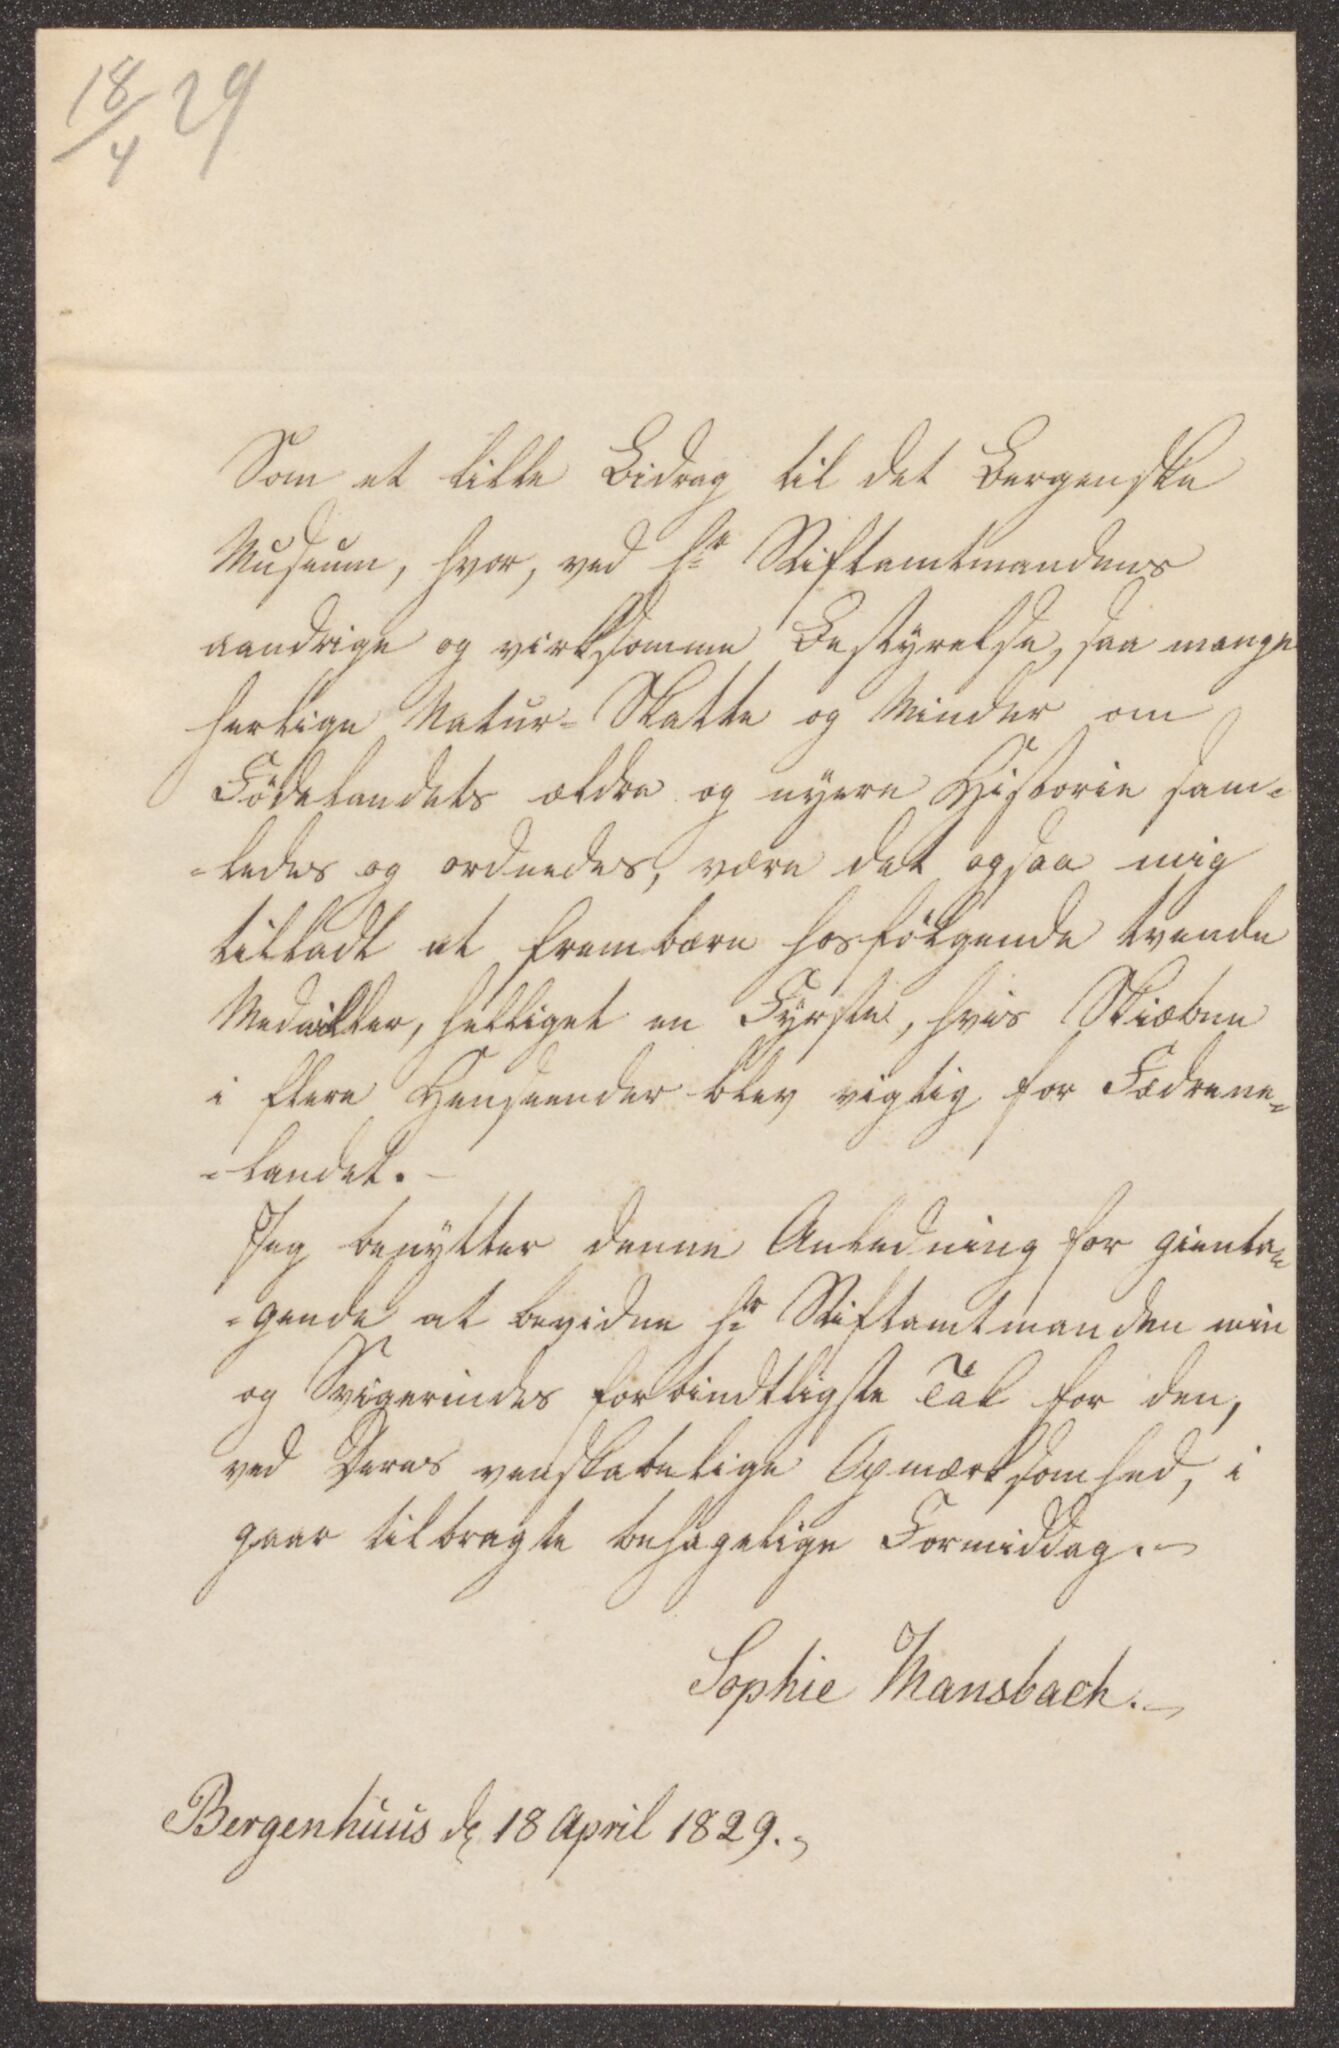 18/4 29
Som et lille Bidrag til det Bergenske
Museum, hvor, ved Hr Stiftamtmandens
aandrige og virksomme Bestyrelse, saa mange
herlige Natur-Skatte og Minder om
Födelandets ældre og nyere Historie sam-
-ledes og ordnedes, være det ogsaa mig
tilladt at frembære hosfölgende tvende
Medailler, helliget en Fyrste, hvis Skiæbne
i flere Henseender blev vigtig for Fædrene-
-landet. -
Jeg benytter denne Anledning for gienta-
-gende at bevidne Hr Stiftamtmanden min
og Svigerindes forbindtligste Tak for den,
ved Deres venskabelige Opmærksomhed, i
gaar tilbragte behagelige Formiddag. -
Sophie Mansbach. -
Bergenhuus d. 18 April 1829. -